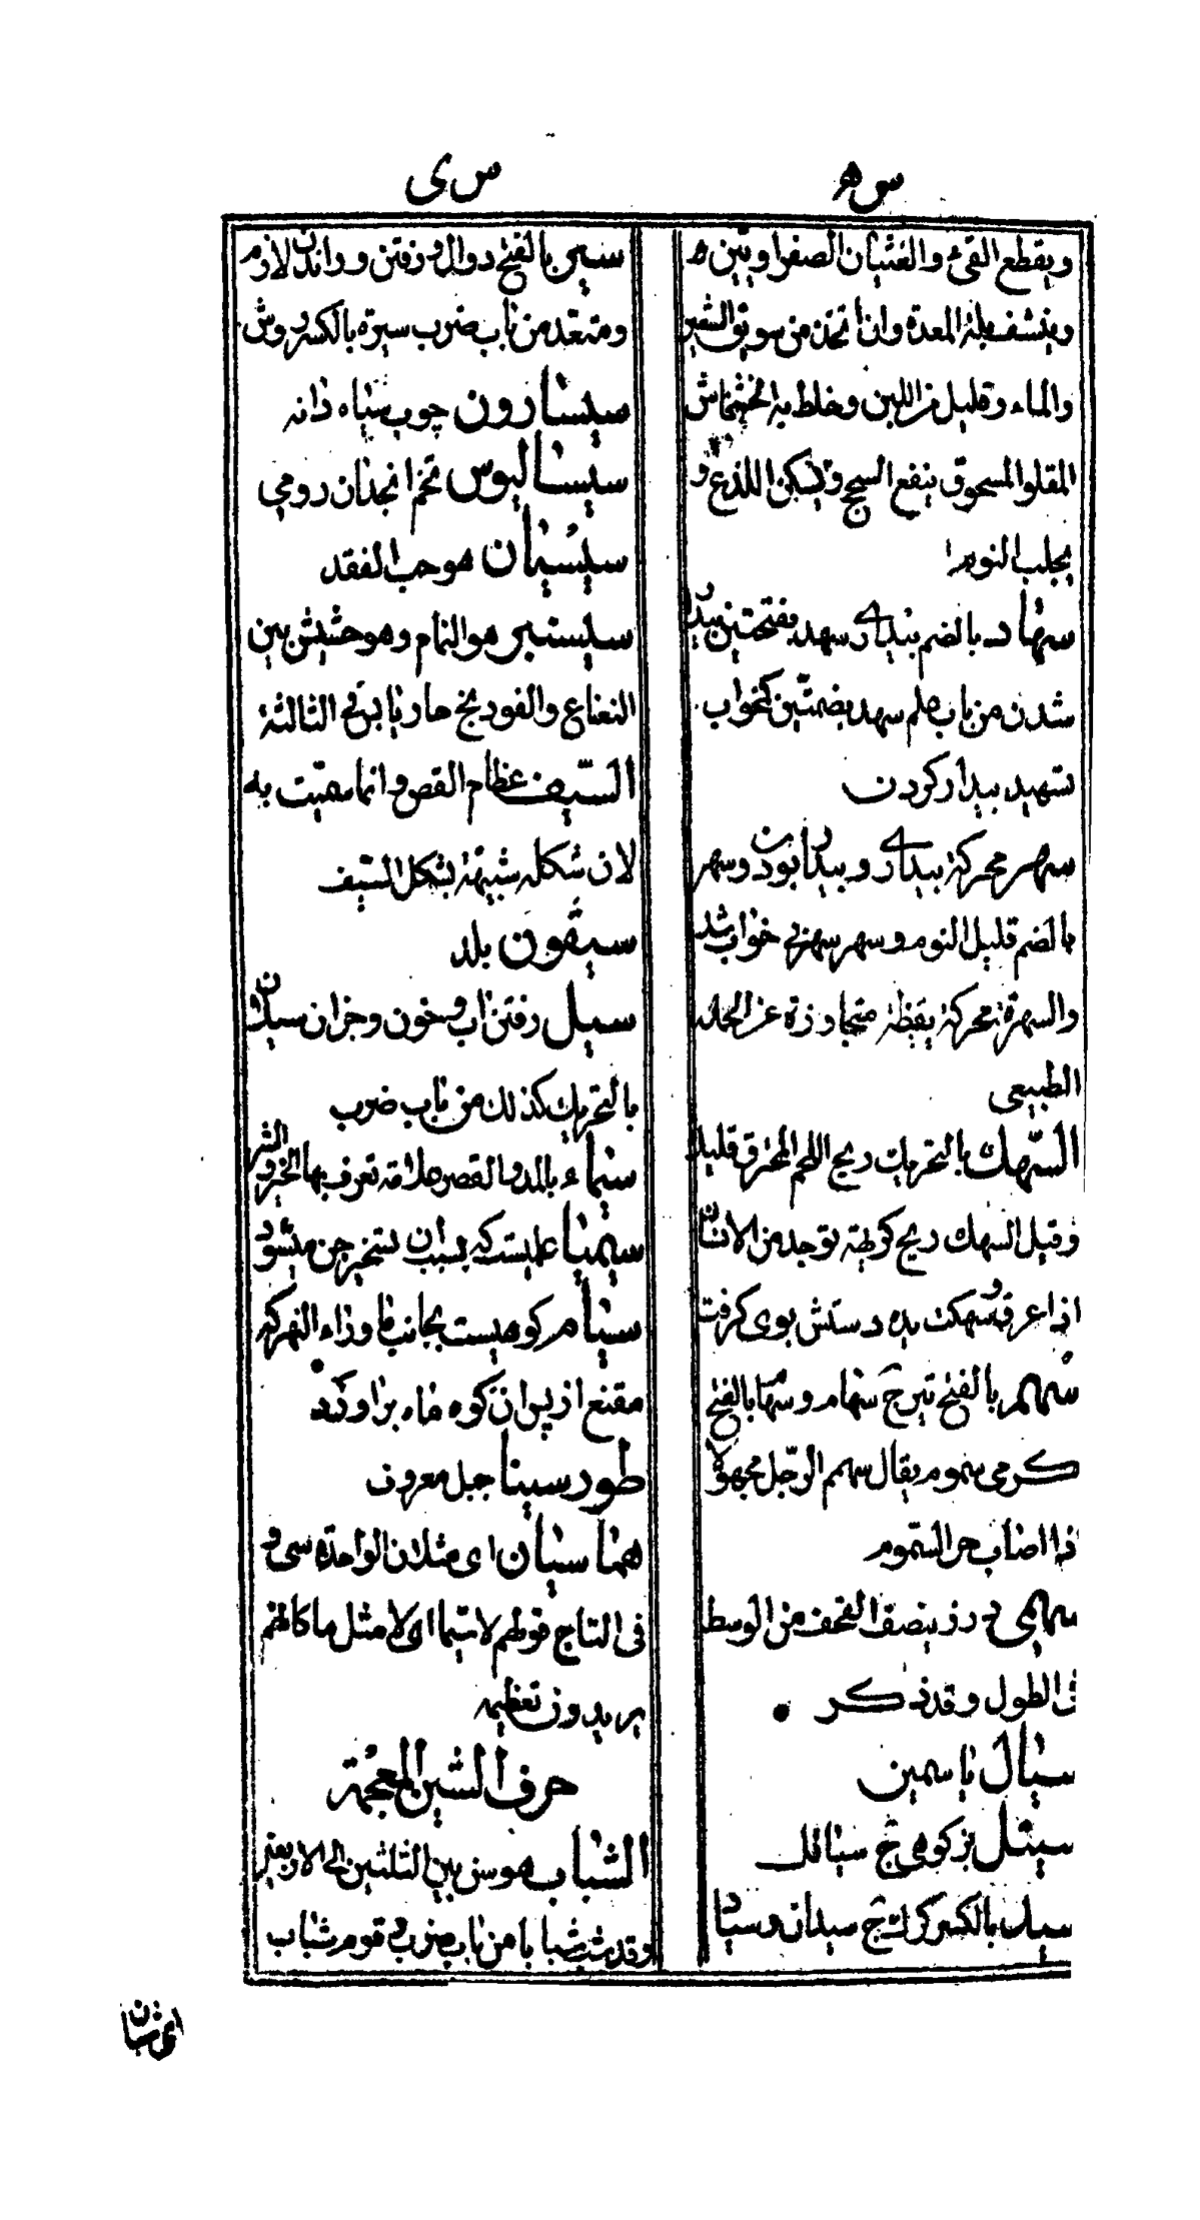 س ه
ويقطع القيء والغثيان الصفراويين ه
وينشف بلة المعدة وان اتخذ من سويق الشعير
والماء وقليل من اللبن وخلط به الخشخاش
المقلو المسحوق ينفع السحج ويسكن اللذع و
يجلب النوم
سهاد بالضم بيداري سهد بفتحتين بيدار
شدن من باب علم سهد بضمتين كمخواب
تسهيد بيدار كردن
سهر محركة بيداري وبيدار بودن وسهر
بالضم قليل النوم وسهر سهر بي خواب شد
والسهرة محركة يقظة متجاوزة عن الحال
الطبيعي
السهك بالتحريك ريح اللحم المحترق قليلا
وقيل السهك ريح كريهة توجد من الانسان
اذا عرق وسهكت يده دستش بوى گرفت
سهم بالفتح تير ج سهام وسهام بالفتح
كرمى سموم يقال سهم الرجل مجهولا
اذا اصاب حر السموم
سهمى درز ينصف القحف من الوسط
فى الطول وقد ذكر
سيال ياسمين
سيتل بز كوهى ج سياتل
سيد بالكسر گرگ ج سيدان وسياد
س ى
سير بالفتح دوال ورفتن وراندن لازم
ومتعد من باب ضرب سيرة بالكسر روش
سيسارون چوب سياه دانه
سيساليوس تخم انجدان رومي
سيسبان هو حب الفقد
سيسنبر هو النمام وهو حشيش بين
النعناع والفوديخ حار يابس في الثالثة
السيف عظام القص وانما سميت به
لان شكله شبيهة بشكل السيف
سيقون بلد
سيل رفتن آب وخون وجز ان سيلان
بالتحريك كذلك من باب ضرب
سيماء بالمد والقصر علامة تعرف بها الخير والشر
سيميا علميست كه بسبب آن تسخير جن ميشود
سيام كوهيست بجانب ماوراء النهر كه
مقنع از پس ان كوه ماه بر اورد
طور سينا جبل معروف
هما سيان اى مثلان الواحدة سى و
فى التاج قولهم لا سيما اى لا مثل ما كانهم
يريدون تعظيمه
حرف الشين المعجمة
الشباب هو سن بين الثلثين الى الاربعين
وقد شب شبابا من باب ضرب وقوم شباب
اى شبان